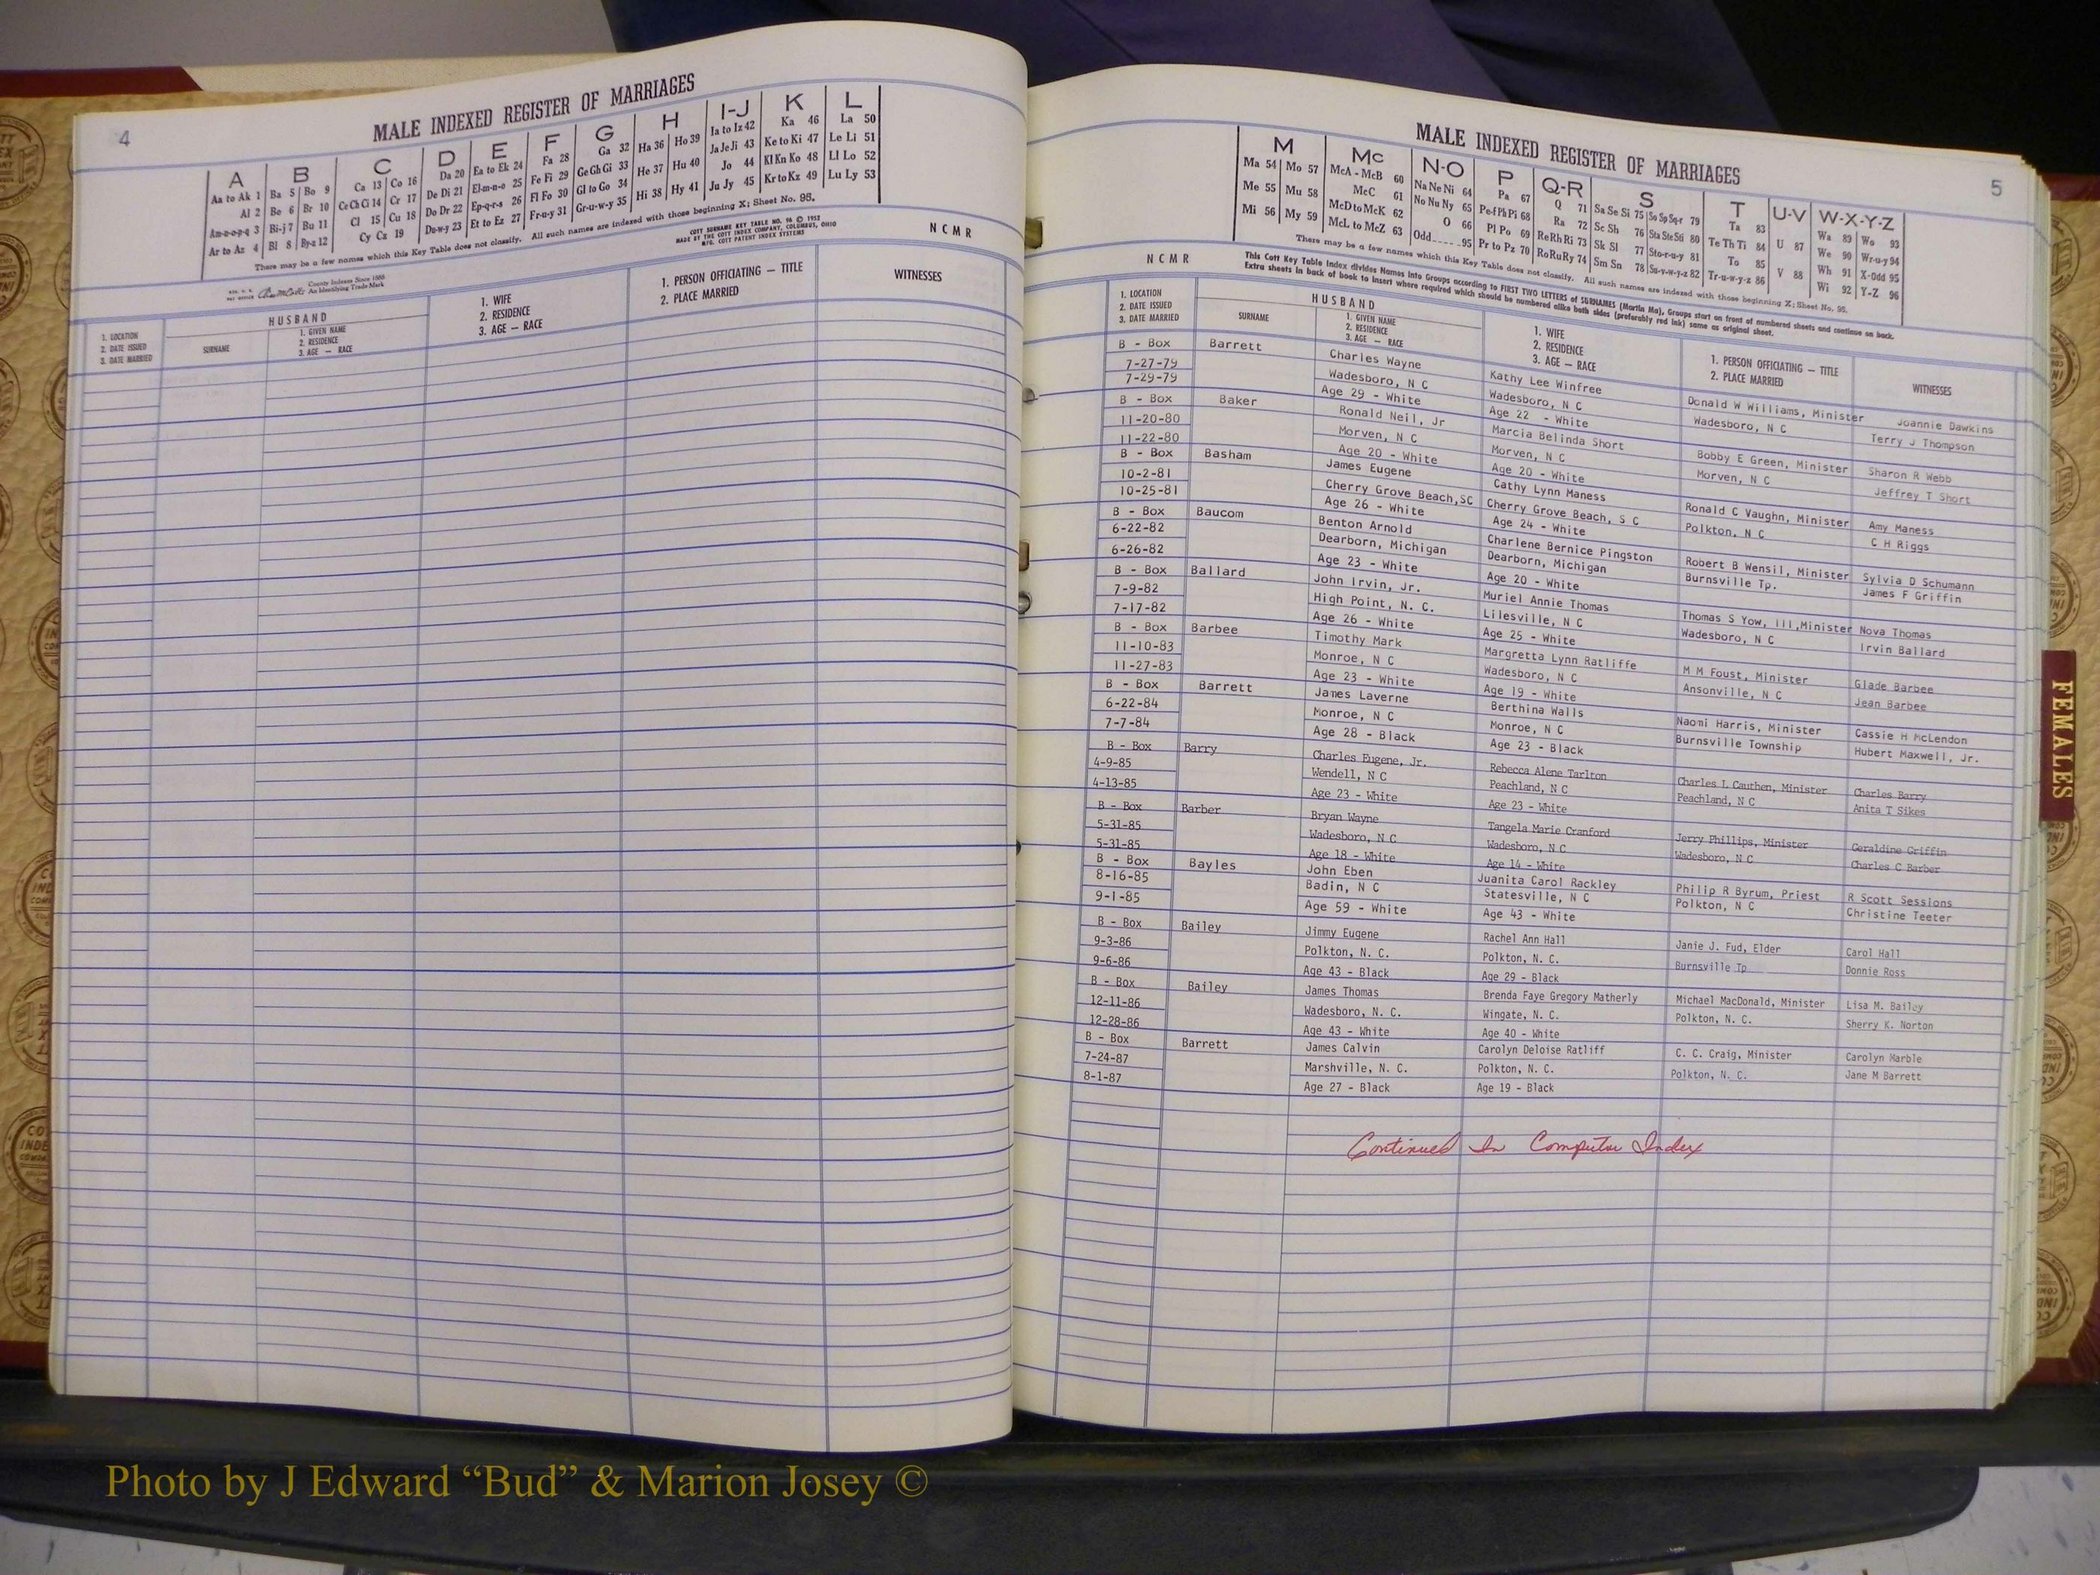 4
MALE INDEXED REGISTER OF MARRIAGES
A B C D E F G H I-J K L
Aa to Ak 1 Ba 5 Bo 9 Ca 13 Co 16 Da 20 Ea to Ek 24 Fa 28 Ga 32 Ha 36 Ho 39 Ia to Iz 42 Ka 46 La 50
Al 2 Be 6 Br 10 Ce Ch Ci 14 Cr 17 De Di 21 El-m-n-o 25 Fe Fi 29 Ge Gh Gi 33 He 37 Hu 40 Ja Je Ji 43 Ke to Ki 47 Le Li 51
Am-n-o-p-q 3 Bi-j 7 Bu 11 Cl 15 Cu 18 Do Dr 22 Ep-q-r-s 26 Fl Fo 30 Gl to Go 34 Hi 38 Hy 41 Jo 44 Kl Kn Ko 48 Ll Lo 52
Ar to Az 4 Bl 8 By-z 12 Cy Cz 19 Du-w-y 23 Et to Ez 27 Fr-u-y 31 Gr-u-w-y 35 Ju Jy 45 Kr to Kz 49 Lu Ly 53
There may be a few names which this Key Table does not classify. All such names are indexed with those beginning X; Sheet No. 95.
COTT SURNAME KEY TABLE NO. 96 © 1952
MADE BY THE COTT INDEX COMPANY, COLUMBUS, OHIO
MFG. COTT PATENT INDEX SYSTEMS
N C M R
County Indexes Since 1888
An Identifying Trade Mark
1. LOCATION
2. DATE ISSUED
3. DATE MARRIED
HUSBAND
SURNAME
1. GIVEN NAME
2. RESIDENCE
3. AGE — RACE
1. WIFE
2. RESIDENCE
3. AGE — RACE
1. PERSON OFFICIATING — TITLE
2. PLACE MARRIED
WITNESSES
5
MALE INDEXED REGISTER OF MARRIAGES
M Mc N-O P Q-R S T U-V W-X-Y-Z
Ma 54 Mo 57 McA - McB 60 Na Ne Ni 64 Pa 67 Q 71 Sa Se Si 75 So Sp Sq-r 79 Ta 83 U 87 Wa 89 Wo 93
Me 55 Mu 58 McC 61 No Nu Ny 65 Pe-f Ph Pi 68 Ra 72 Sc Sh 76 Sta Ste Sti 80 Te Th Ti 84 V 88 We 90 Wr-u-y 94
Mi 56 My 59 McD to McK 62 O 66 Pl Po 69 Re Rh Ri 73 Sk Sl 77 Sto-r-u-y 81 To 85 Wh 91 X-Odd 95
McL to McZ 63 Odd 95 Pr to Pz 70 Ro Ru Ry 74 Sm Sn 78 Su-v-w-y-z 82 Tr-u-w-y-z 86 Wi 92 Y-Z 96
There may be a few names which this Key Table does not classify. All such names are indexed with those beginning X; Sheet No. 95.
N C M R
This Cott Key Table Index divides Names into Groups according to FIRST TWO LETTERS of SURNAMES (Martin Ma). Groups start on front of numbered sheets and continue on back.
Extra sheets in back of book to insert where required which should be numbered alike both sides (preferably red ink) same as original sheet.
1. LOCATION
2. DATE ISSUED
3. DATE MARRIED
HUSBAND
SURNAME
1. GIVEN NAME
2. RESIDENCE
3. AGE — RACE
1. WIFE
2. RESIDENCE
3. AGE — RACE
1. PERSON OFFICIATING — TITLE
2. PLACE MARRIED
WITNESSES
B - Box Barrett Charles Wayne Kathy Lee Winfree Donald W Williams, Minister Joannie Dawkins
7-27-79 Wadesboro, N C Wadesboro, N C Wadesboro, N C Terry J Thompson
7-29-79 Age 29 - White Age 22 - White
B - Box Baker Ronald Neil, Jr Marcia Belinda Short Bobby E Green, Minister Sharon R Webb
11-20-80 Morven, N C Morven, N C Morven, N C Jeffrey T Short
11-22-80 Age 20 - White Age 20 - White
B - Box Basham James Eugene Cathy Lynn Maness Ronald C Vaughn, Minister Amy Maness
10-2-81 Cherry Grove Beach,SC Cherry Grove Beach, S C Polkton, N C C H Riggs
10-25-81 Age 26 - White Age 24 - White
B - Box Baucom Benton Arnold Charlene Bernice Pingston Robert B Wensil, Minister Sylvia D Schumann
6-22-82 Dearborn, Michigan Dearborn, Michigan Burnsville Tp. James F Griffin
6-26-82 Age 23 - White Age 20 - White
B - Box Ballard John Irvin, Jr. Muriel Annie Thomas Thomas S Yow, III,Minister Nova Thomas
7-9-82 High Point, N. C. Lilesville, N C Wadesboro, N C Irvin Ballard
7-17-82 Age 26 - White Age 25 - White
B - Box Barbee Timothy Mark Margretta Lynn Ratliffe M M Foust, Minister Glade Barbee
11-10-83 Monroe, N C Wadesboro, N C Ansonville, N C Jean Barbee
11-27-83 Age 23 - White Age 19 - White
B - Box Barrett James Laverne Berthina Walls Naomi Harris, Minister Cassie H McLendon
6-22-84 Monroe, N C Monroe, N C Burnsville Township Hubert Maxwell, Jr.
7-7-84 Age 28 - Black Age 23 - Black
B - Box Barry Charles Eugene, Jr. Rebecca Alene Tarlton Charles L Cauthen, Minister Charles Barry
4-9-85 Wendell, N C Peachland, N C Peachland, N C Anita T Sikes
4-13-85 Age 23 - White Age 23 - White
B - Box Barber Bryan Wayne Tangela Marie Cranford Jerry Phillips, Minister Geraldine Griffin
5-31-85 Wadesboro, N C Wadesboro, N C Wadesboro, N C Charles C Barber
5-31-85 Age 18 - White Age 14 - White
B - Box Bayles John Eben Juanita Carol Rackley Philip R Byrum, Priest R Scott Sessions
8-16-85 Badin, N C Statesville, N C Polkton, N C Christine Teeter
9-1-85 Age 59 - White Age 43 - White
B - Box Bailey Jimmy Eugene Rachel Ann Hall Janie J. Fud, Elder Carol Hall
9-3-86 Polkton, N. C. Polkton, N. C. Burnsville Tp Donnie Ross
9-6-86 Age 43 - Black Age 29 - Black
B - Box Bailey James Thomas Brenda Faye Gregory Matherly Michael MacDonald, Minister Lisa M. Bailey
12-11-86 Wadesboro, N. C. Wingate, N. C. Polkton, N. C. Sherry K. Norton
12-28-86 Age 43 - White Age 40 - White
B - Box Barrett James Calvin Carolyn Deloise Ratliff C. C. Craig, Minister Carolyn Marble
7-24-87 Marshville, N. C. Polkton, N. C. Polkton, N. C. Jane M Barrett
8-1-87 Age 27 - Black Age 19 - Black
Continued In Computer Index
FEMALES
Photo by J Edward “Bud” & Marion Josey ©